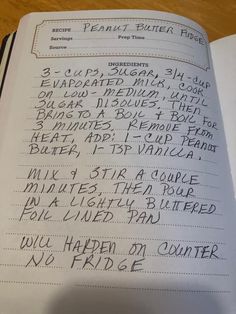 RECIPE PEANUT BUTTER FUDGE
Servings Prep Time
Source
INGREDIENTS
3-CUPS, SUGAR, 3/4-CUP
EVAPORATED MILK, COOK
ON LOW-MEDIUM, UNTIL
SUGAR DISOLVES, THEN
BRING TO A BOIL & BOIL FOR
3 MINUTES. REMOVE FROM
HEAT, ADD: 1-CUP PEANUT
BUTTER, 1-TSP VANILLA.
MIX & STIR A COUPLE
MINUTES, THEN POUR
IN A LIGHTLY BUTTERED
FOIL LINED PAN
WILL HARDEN ON COUNTER
NO FRIDGE